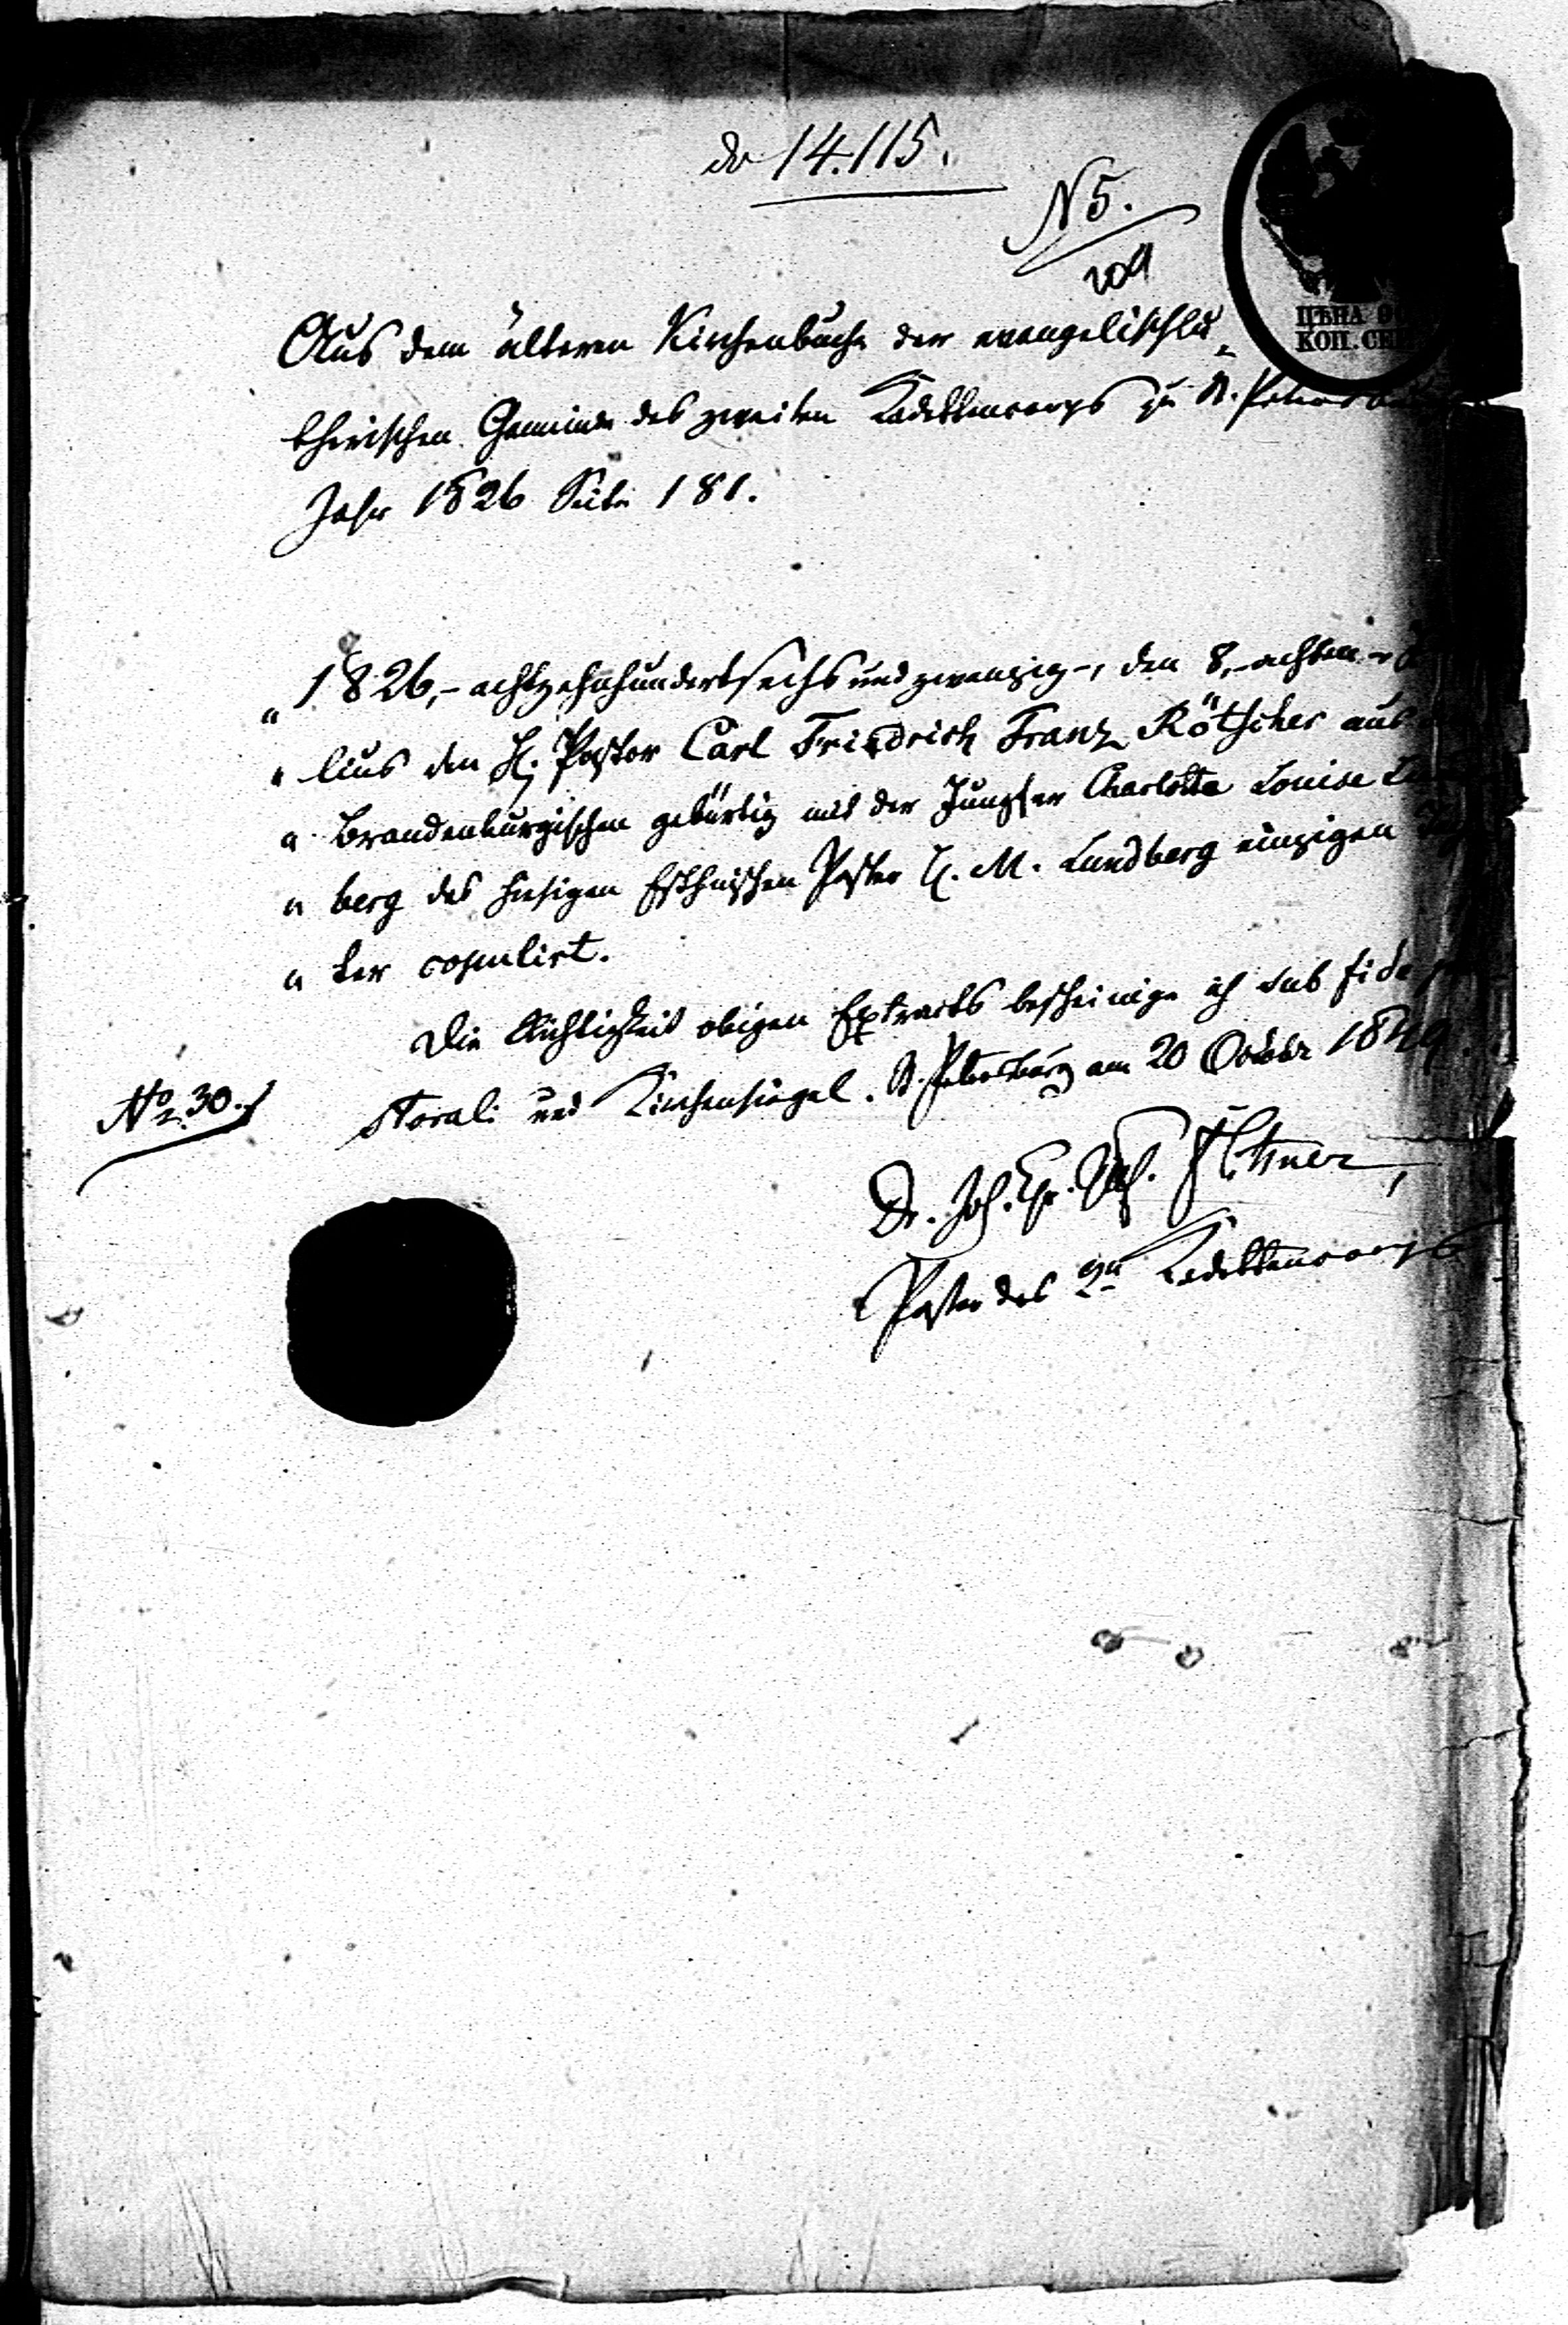 ad 14.115.
N 5.
209
ЦѢНА 90
КОП. СЕР
Aus dem älteren Kirchenbuche der evangelischlu-
therischen Gemeinde des zweiten Kadettencorps zu St. Petersburg
Jahr 1826 Seite 181.
„ 1826, - achtzehnhundertsechsundzwanzig -, den 8, - achten -
„ lius den H. Pastor Carl Friedrich Franz Rötscher aus
„ Brandenburgischen gebürtig mit der Jungfer Charlotta Louise
„ berg des hiesigen Esthnischen Pastor H. M. Lundberg einzigen
„ ter copulirt.
Die Richtigkeit obigen Extracts bescheinige ich sub fide pa
storali und Kirchensiegel. St. Petersburg am 20 October 1849.
No 30.
Dr. Joh.
Pastor des 2n Kadettencorps